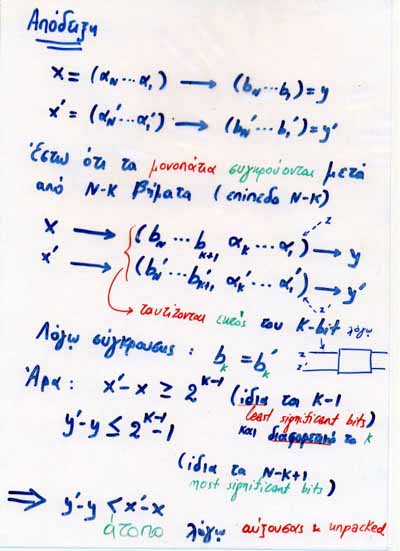 Απόδειξη
x = (α_N ... α_1) → (b_N ... b_1) = y
x' = (α_N' ... α_1') → (b_N' ... b_1') = y'
Έστω ότι τα μονοπάτια συγκρούονται μετά
από N-K βήματα (επίπεδο N-K)
z
x → (b_N ... b_{K+1} α_K ... α_1) → y
x' → (b_N' ... b_{K+1}' α_K' ... α_1') → y'
z'
ταυτίζονται εκτός του K-bit λόγω
Λόγω σύγκρουσης : b_K = b_K'
z
z'
Άρα : x' - x ≥ 2^{K-1} (ίδια τα K-1
least significant bits)
και διαφορετικό το K
y' - y ≤ 2^{K-1} - 1
(ίδια τα N-K+1
most significant bits)
⇒ y' - y < x' - x
άτοπο λόγω αύξουσας & unpacked